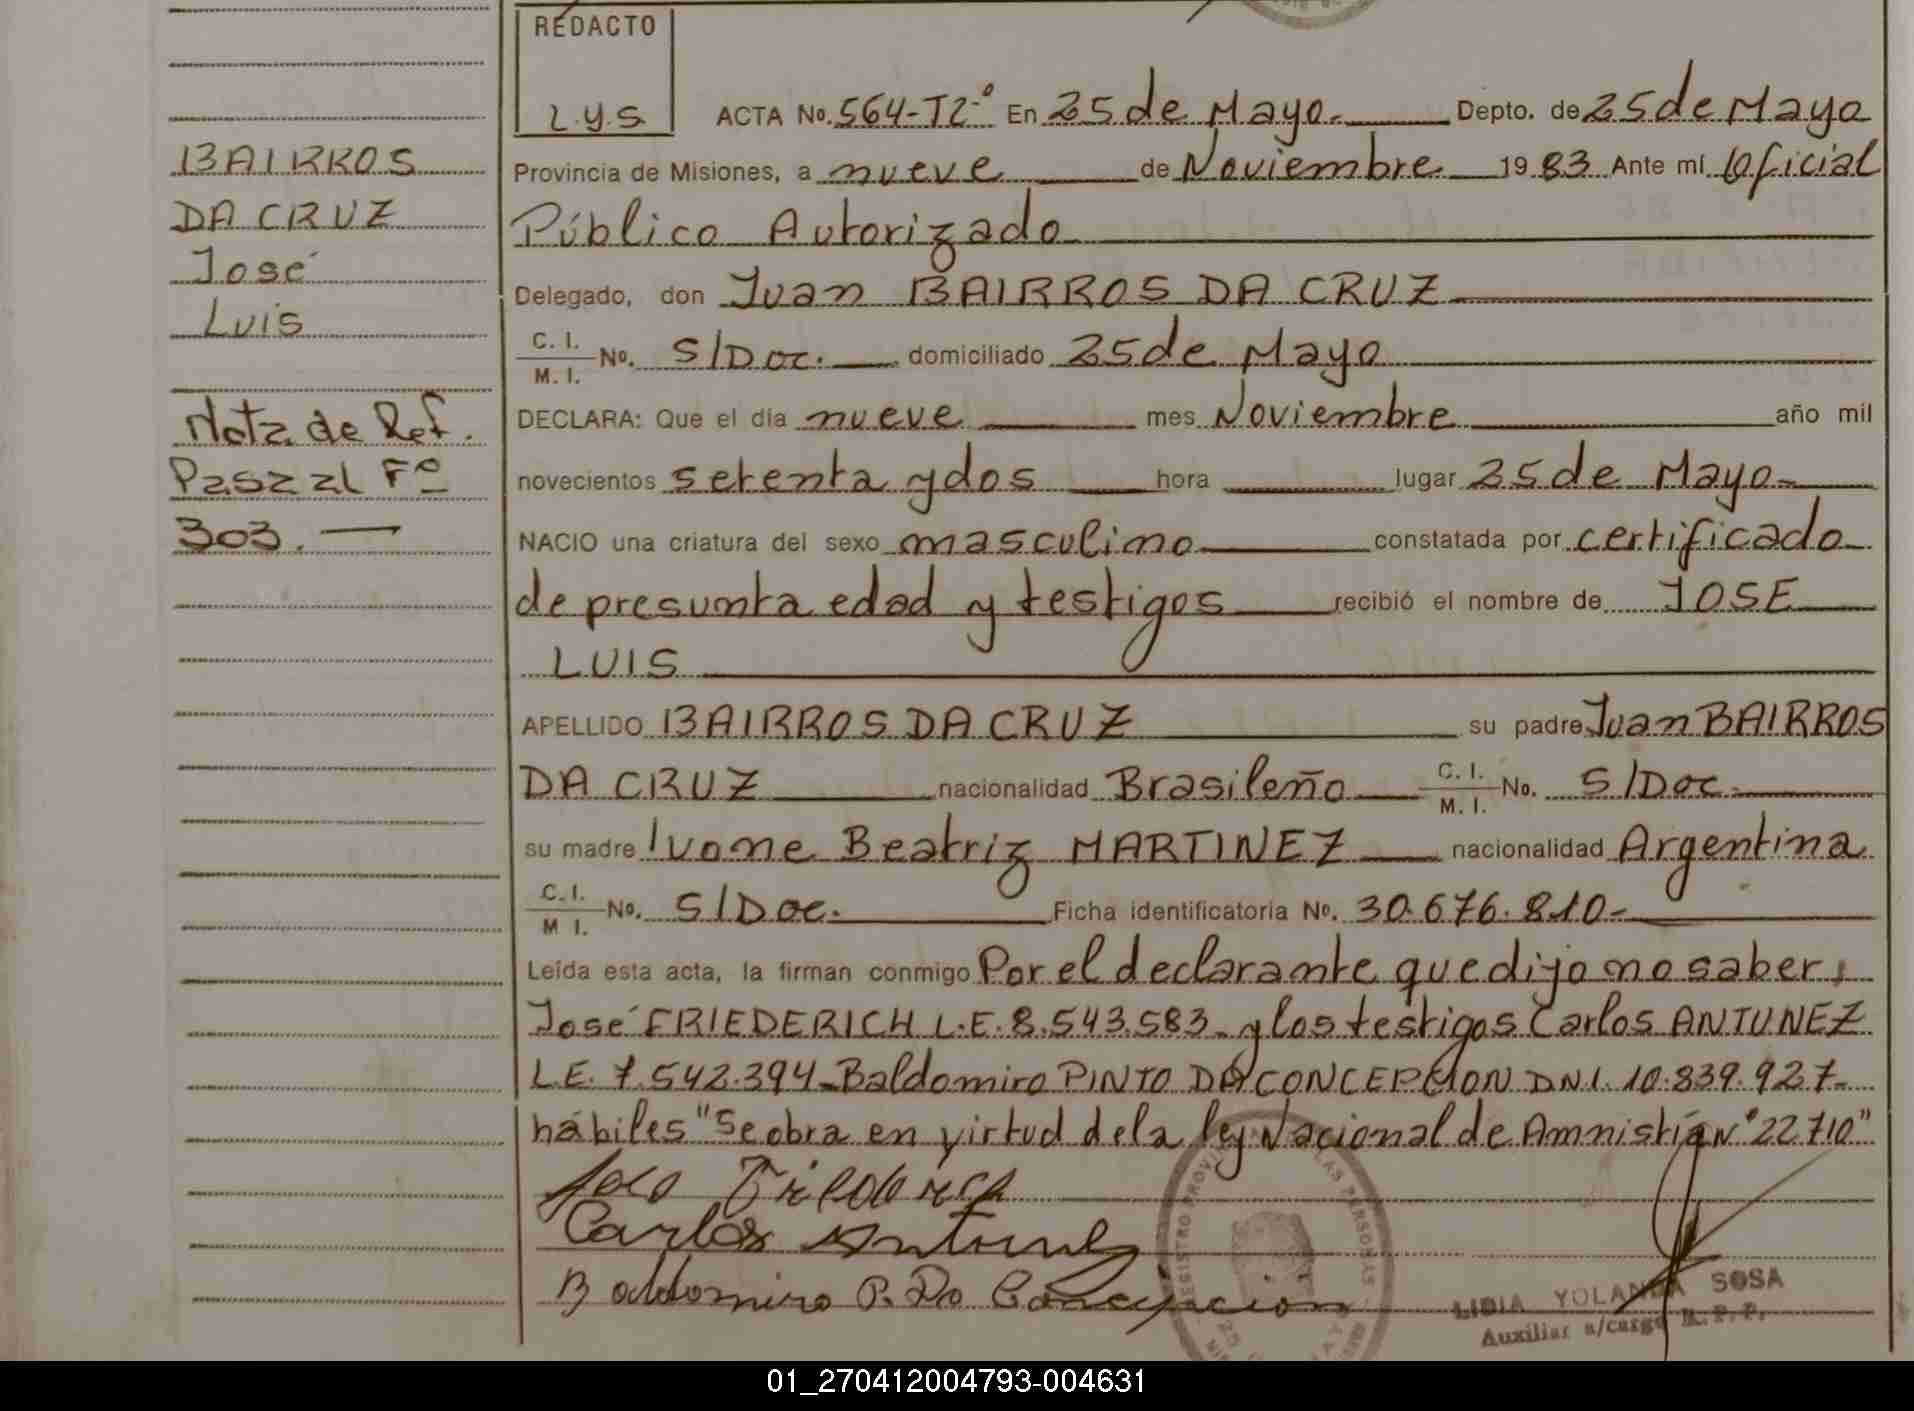 REDACTO
L.Y.S.
ACTA No. 564-T2-º En 25 de Mayo. Depto. de 25 de Mayo
Provincia de Misiones, a nueve de Noviembre 1983 Ante mí Oficial
Público Autorizado
Delegado, don Juan BAIRROS DA CRUZ
C. I.
M. I. No. S/Doc. domiciliado 25 de Mayo
DECLARA: Que el día nueve mes Noviembre año mil
novecientos setenta y dos hora lugar 25 de Mayo-
NACIO una criatura del sexo masculino constatada por certificado
de presunta edad y testigos recibió el nombre de JOSE
LUIS
APELLIDO BAIRROS DA CRUZ su padre Juan BAIRROS
DA CRUZ nacionalidad Brasileño C. I. M. I. No. S/Doc.
su madre Ivone Beatriz MARTINEZ nacionalidad Argentina
C. I.
M I. No. S/Doc. Ficha identificatoria No. 30.676.810-
Leída esta acta, la firman conmigo Por el declarante que dijo no saber,
José FRIEDERICH L.E. 8.543.583- y los testigos Carlos ANTUNEZ
L.E. 7.542.394- Baldomiro PINTO DA CONCEPCION DNI. 10.839.927-
hábiles "Se obra en virtud de la ley Nacional de Amnistía Nº 22710"
Carlos Antunez
Baldomiro P. Do Concepcion
LIDIA YOLANDA SOSA
Auxiliar a/cargo R.P.P.
BAIRROS
DA CRUZ
José
Luis
Nota de Ref.
Pasa al Fº
303.
01_270412004793-004631